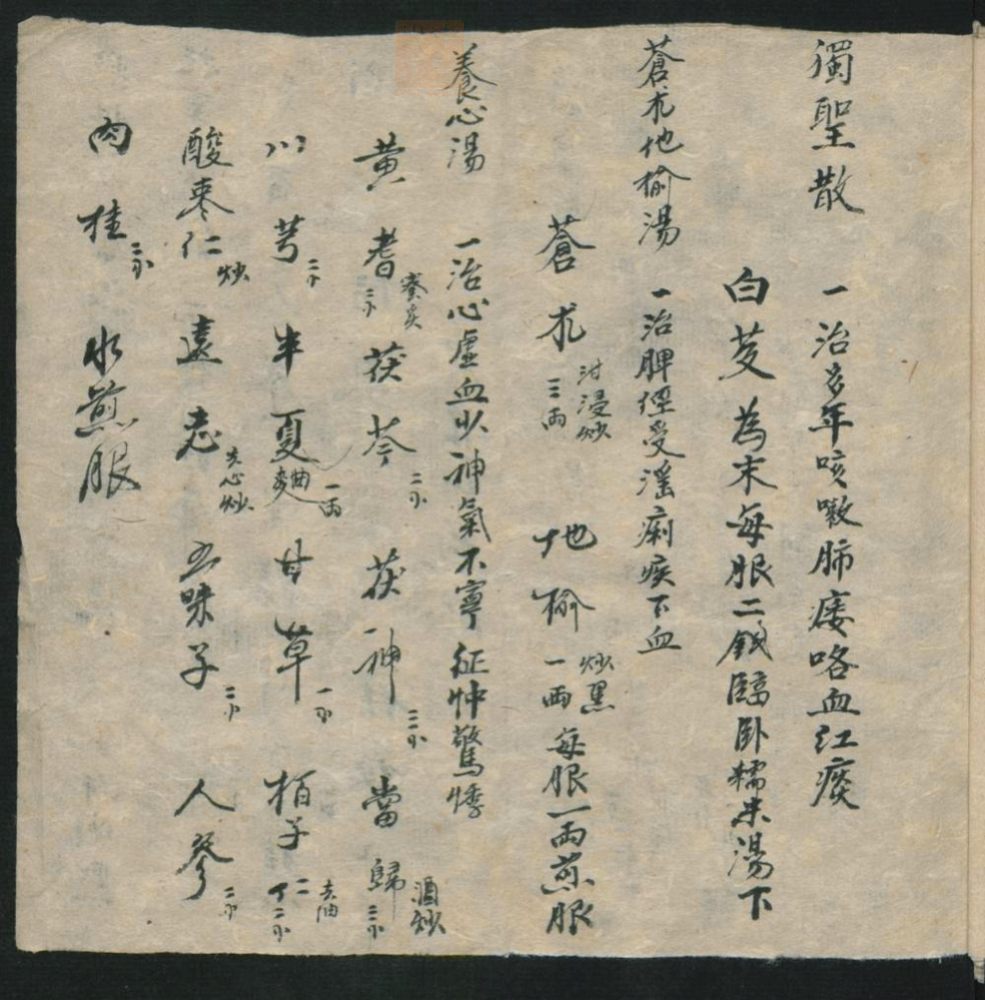 獨聖散
一治多年咳嗽肺痿咯血红痰
白芨為末每服二錢臨卧糯米湯下
蒼朮地榆湯
一治脾經受濕痢疾下血
蒼朮三兩泔浸炒 地榆一兩炒黑每服一兩煎服
養心湯
一治心虛血少神氣不寧征忡驚悸
黄耆二分蜜炙 茯苓二分 茯神三分 當歸三分酒炒
川芎二分 半夏麯一兩 甘草一分 栢子仁二分去油
酸棗仁炒 遠志去心炒 五味子二分 人參二分
肉桂二分 水煎服